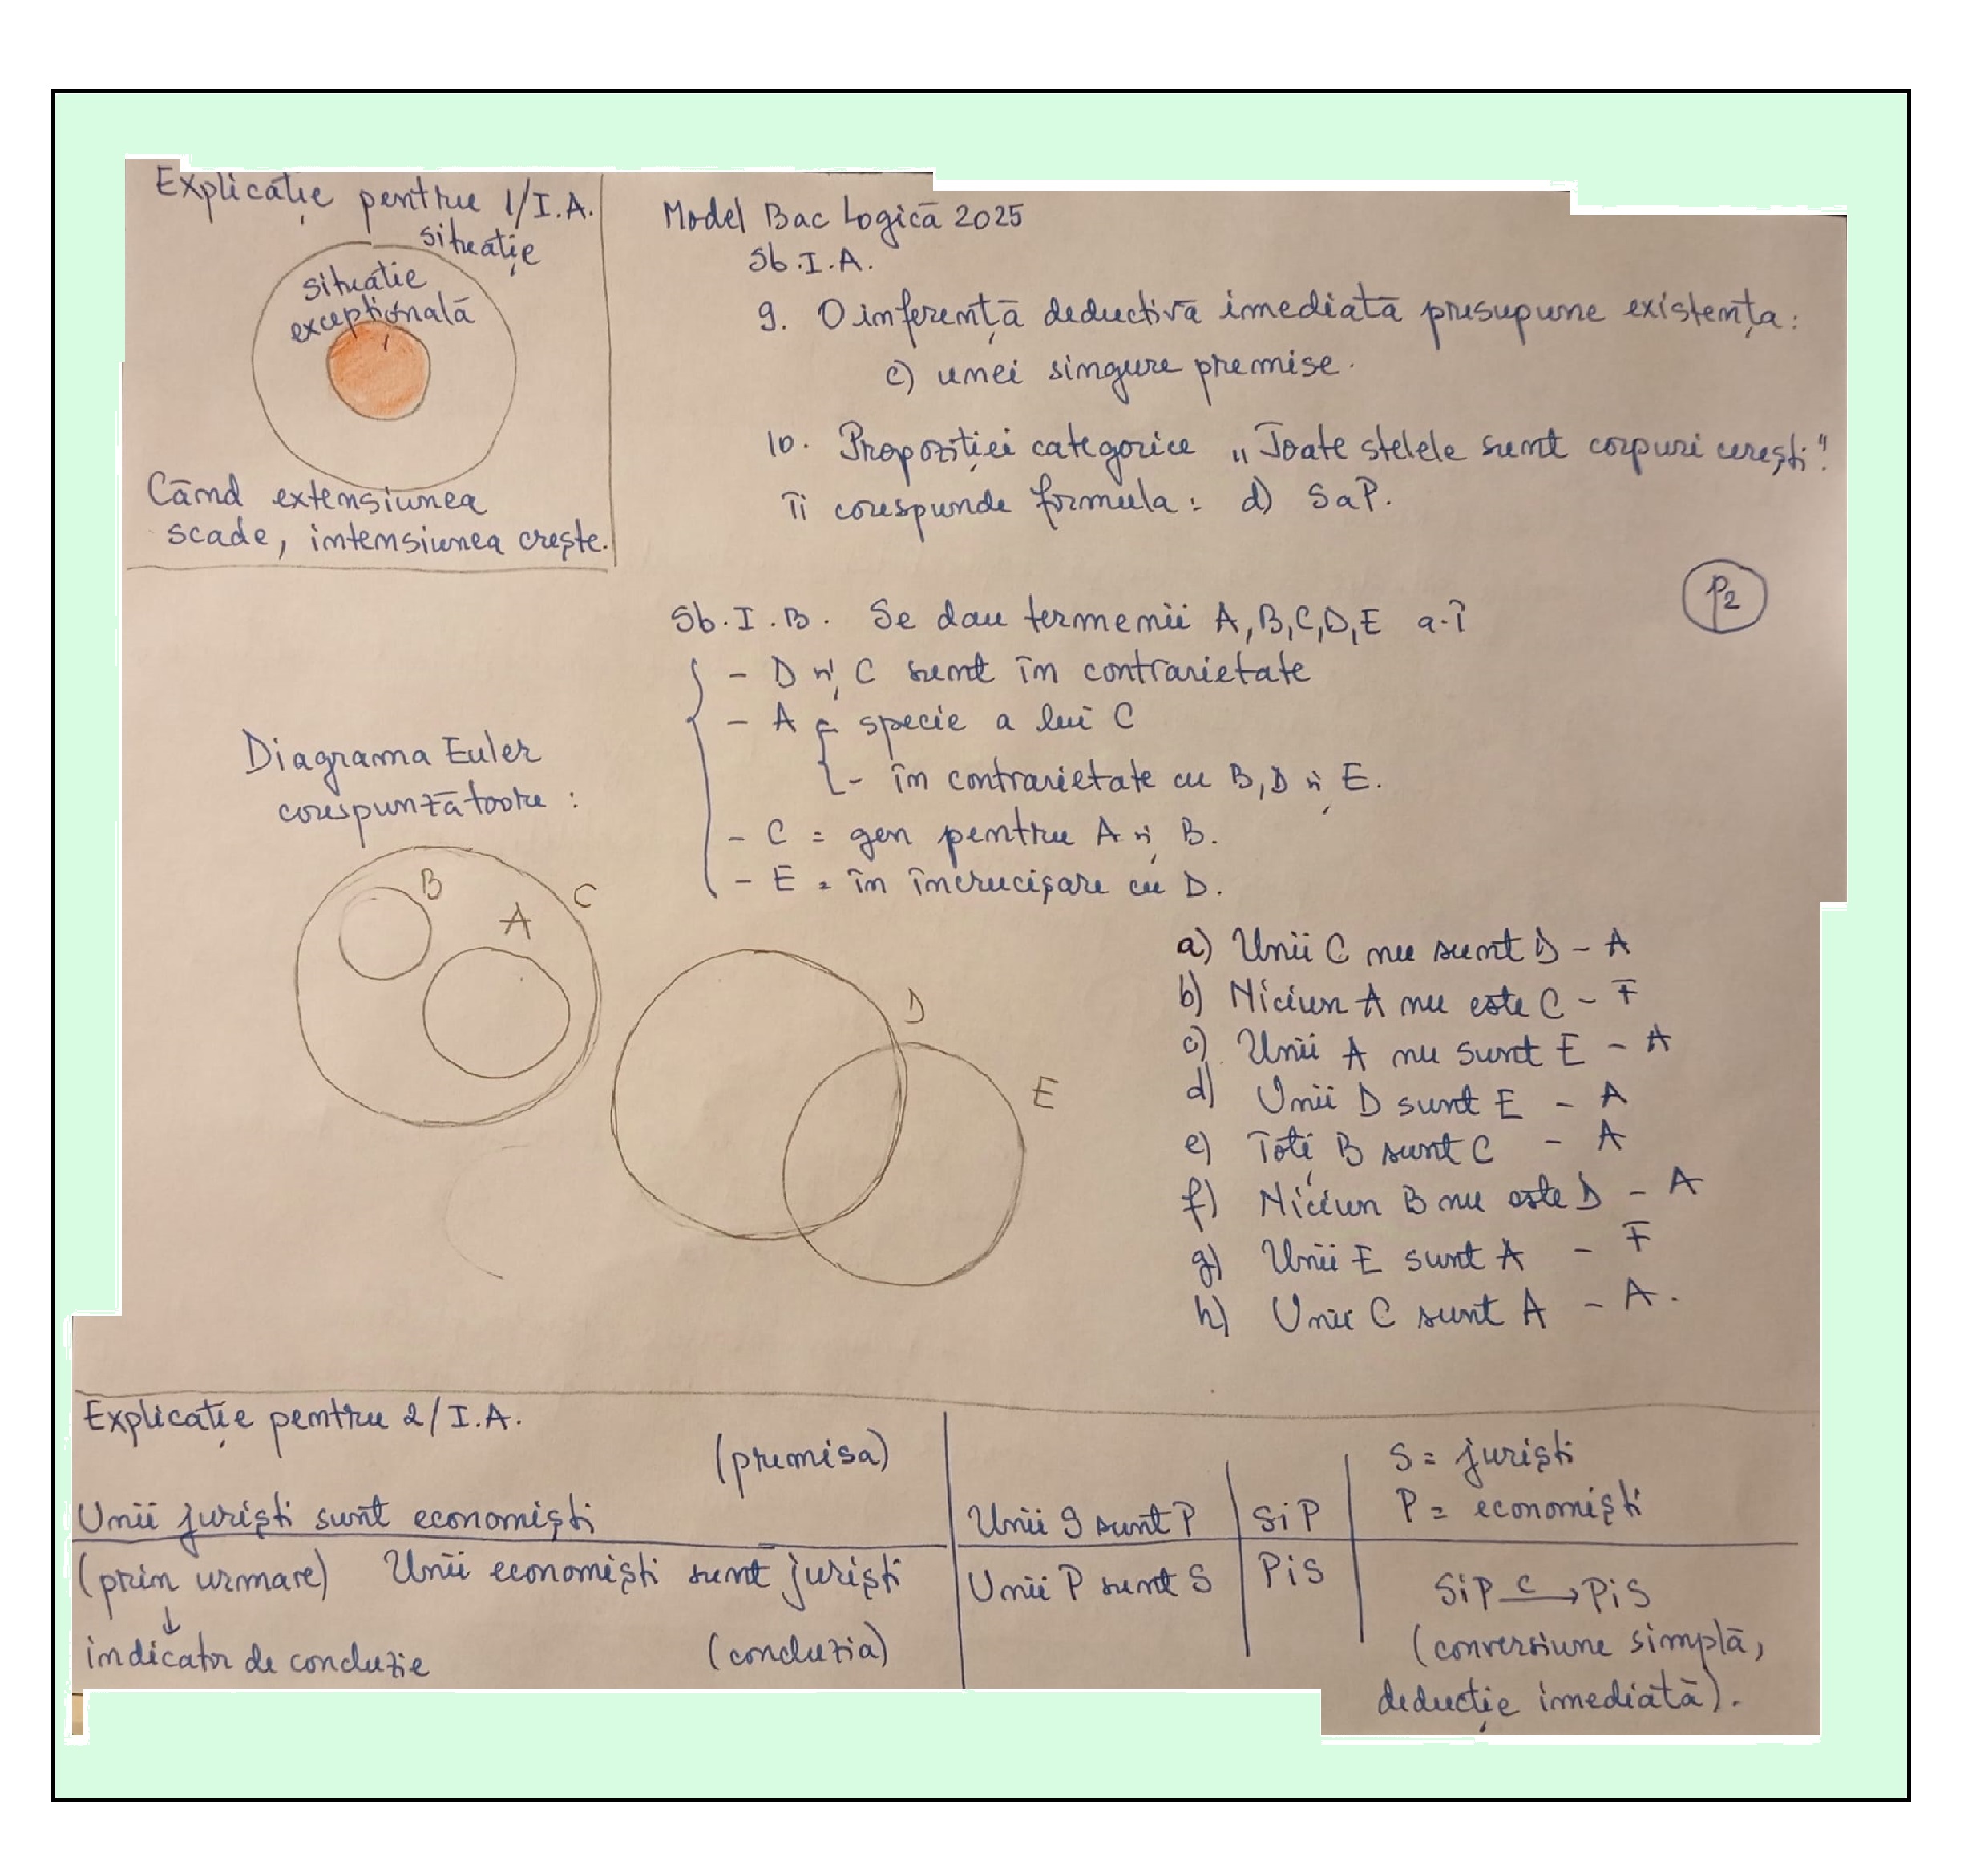 Explicație pentru 1/I.A.
situație
situație
excepțională
Când extensiunea
scade, intensiunea crește.
Model Bac Logică 2025
Sb.I.A.
9. O inferență deductivă imediată presupune existența:
c) unei singure premise.
10. Propoziției categorice „Toate stelele sunt corpuri cerești"
îi corespunde formula: d) SaP.
P2
Sb.I.B. Se dau termenii A,B,C,D,E a.î
- D și C sunt în contrarietate
- A - specie a lui C
- în contrarietate cu B, D și E.
- C = gen pentru A și B.
- E = în încrucișare cu D.
Diagrama Euler
corespunzătoare :
B
A
C
D
E
a) Unii C nu sunt D - A
b) Niciun A nu este C - F
c) Unii A nu sunt E - A
d) Unii D sunt E - A
e) Toți B sunt C - A
f) Niciun B nu este D - A
g) Unii E sunt A - F
h) Unii C sunt A - A.
Explicație pentru 2/I.A.
(premisa)
Unii juriști sunt economiști
(prin urmare) Unii economiști sunt juriști
↓
indicator de concluzie (concluzia)
Unii S sunt P
Unii P sunt S
SiP
PiS
S = juriști
P = economiști
SiP c→ PiS
(conversiune simplă,
deducție imediată).